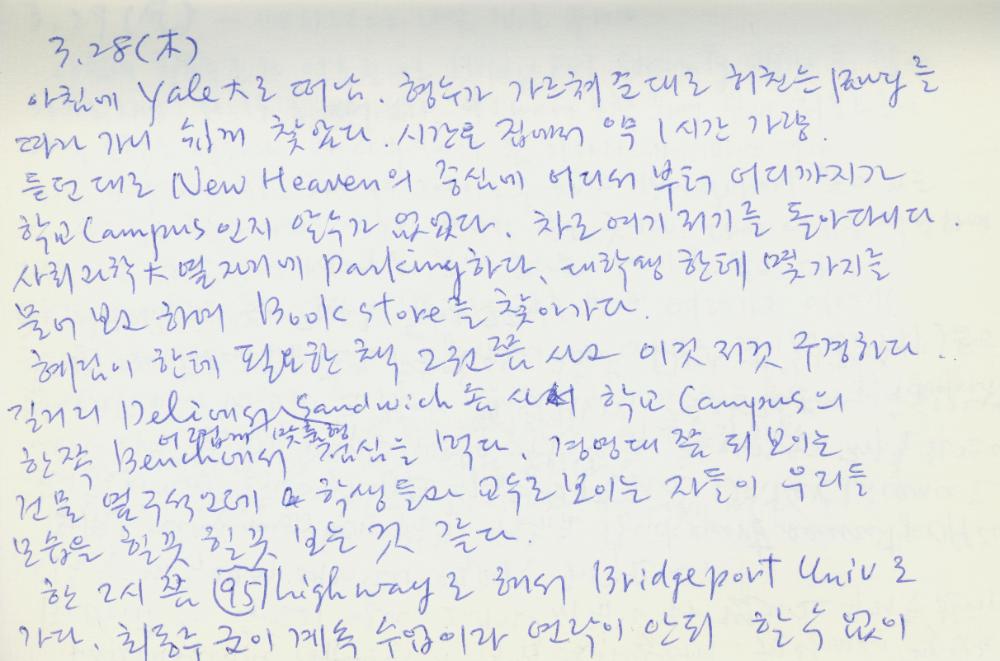 3.28(木)
아침에 Yale大로 떠남. 형수가 가르쳐 준대로 허친는 Pkwy를
따라 가니 쉽게 찾았다. 시간로 집에서 약 1시간 가량.
듣던 대로 New Heaven의 중심에 어디서 부터 어디까지가
학교 Campus 인지 알수가 없었다. 차로 여기 저기를 돌아다니다.
사회과학大 옆 거리에 parking하다. 대학생 한테 몇가지를
물어 보고 하며 Book store를 찾아가다.
혜림이 한테 필요한 책 2권 쯤 사고 이것 저것 구경하다..
길거리 Deli에서 Sandwich 좀 사서 학교 Campus의
어렵게 맞춤형
한쪽 Bench에서 점심을 먹다. 경영대 쯤 되 보이는
건물 옆 구석으로 학생들과 교수로 보이는 자들이 우리들
모습을 힐끗 힐끗 보는 것 같다.
한 2시 쯤 95 highway로 해서 Bridgeport Univ로
가다. 최동주 군이 계속 수업이라 연락이 안되 할수 없이